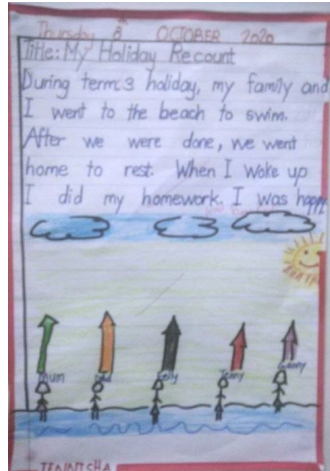 Thursday 8th OCTOBER 2020
Title: My Holiday Recount
During term 3 holiday, my family and
I went to the beach to swim.
After we were done, we went
home to rest. When I woke up
I did my homework. I was happy
Mum Dad Jenny